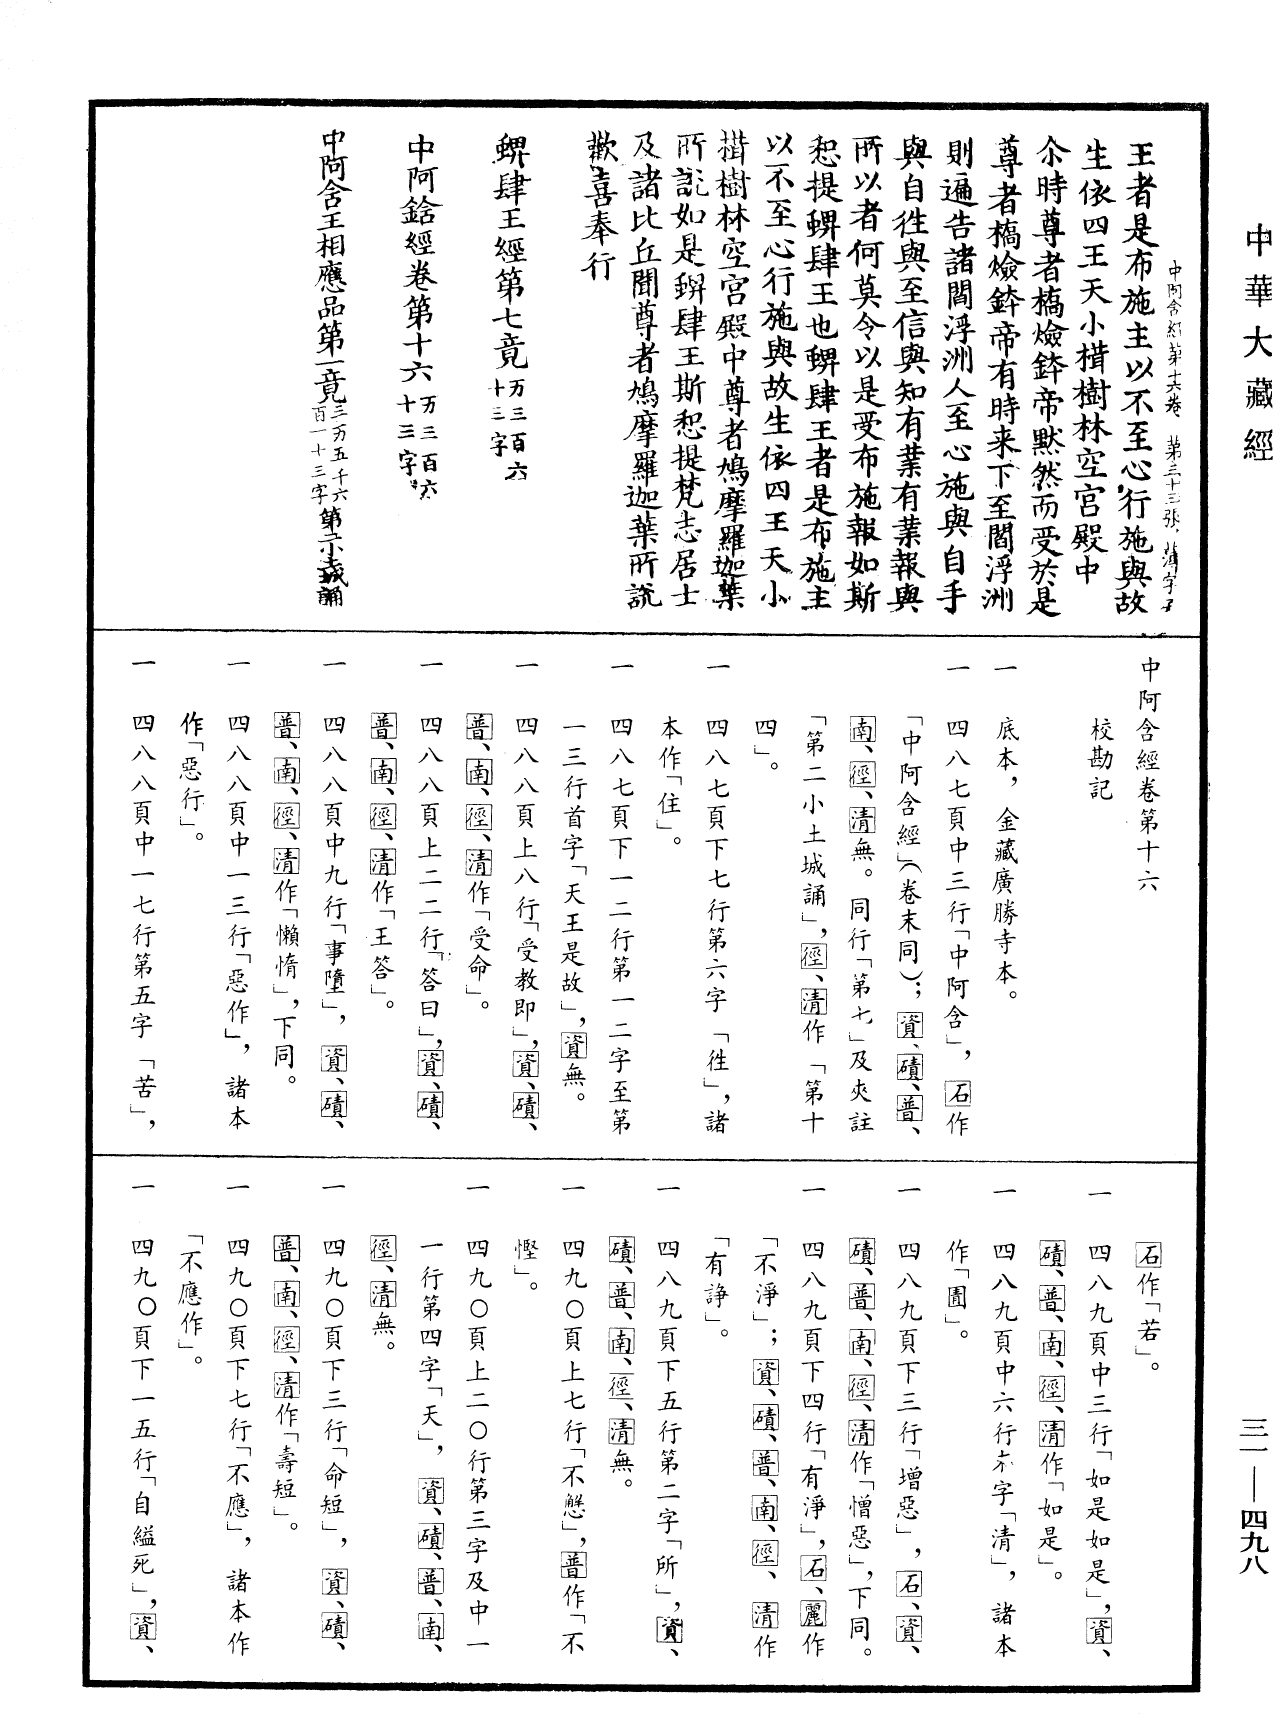 中華大藏經
中阿含經第十六卷　第三十三張　薄字
王者是布施主以不至心行施與故
生依四王天小樹林空宮殿中
尒時尊者橋焰鉢帝默然而受於是
尊者橋焰鉢帝有時来下至閻浮洲
則遍告諸閻浮洲人至心施與自手
與自往與至信與知有業有業報與
所以者何莫令以是受布施報如斯
惒提蜱肆王也蜱肆王者是布施主
以不至心行施與故生依四王天小
樹林空宮殿中尊者鳩摩羅迦葉
所說如是蜱肆王斯惒提梵志居士
及諸比丘聞尊者鳩摩羅迦葉所說
歡喜奉行
蜱肆王經第七竟万三百六十三字
中阿鋡經卷第十六万三百六十三字
中阿含王相應品第一竟三万五千六百一十三字第二小土城誦
中阿含經卷第十六
校勘記
一　底本，金藏廣勝寺本。
一　四八七頁中三行「中阿含」，石作
「中阿含經」（卷末同）；資、磧、普、
南、徑、清無。同行「第七」及夾註
「第二小土城誦」，徑、清作「第十
四」。
一　四八七頁下七行第六字「徃」，諸
本作「住」。
一　四八七頁下一二行第一二字至第
一三行首字「天王是故」，資無。
一　四八八頁上八行「受教即」，資、磧、
普、南、徑、清作「受命」。
一　四八八頁上二二行「答曰」，資、磧、
普、南、徑、清作「王答」。
一　四八八頁中九行「事墮」，資、磧、
普、南、徑、清作「懶惰」，下同。
一　四八八頁中一三行「惡作」，諸本
作「惡行」。
一　四八八頁中一七行第五字「苦」，
石作「若」。
一　四八九頁中三行「如是如是」，資、
磧、普、南、徑、清作「如是」。
一　四八九頁中六行末字「清」，諸本
作「圊」。
一　四八九頁下三行「增惡」，石、資、
磧、普、南、徑、清作「憎惡」，下同。
一　四八九頁下四行「有淨」，石、麗作
「不淨」；資、磧、普、南、徑、清作
「有諍」。
一　四八九頁下五行第二字「所」，資、
磧、普、南、徑、清無。
一　四九〇頁上七行「不慳」，普作「不
慳」。
一　四九〇頁上二〇行第三字及中一
一行第四字「天」，資、磧、普、南、
徑、清無。
一　四九〇頁下三行「命短」，資、磧、
普、南、徑、清作「壽短」。
一　四九〇頁下七行「不應」，諸本作
「不應作」。
一　四九〇頁下一五行「自縊死」，資、
三一—四九八